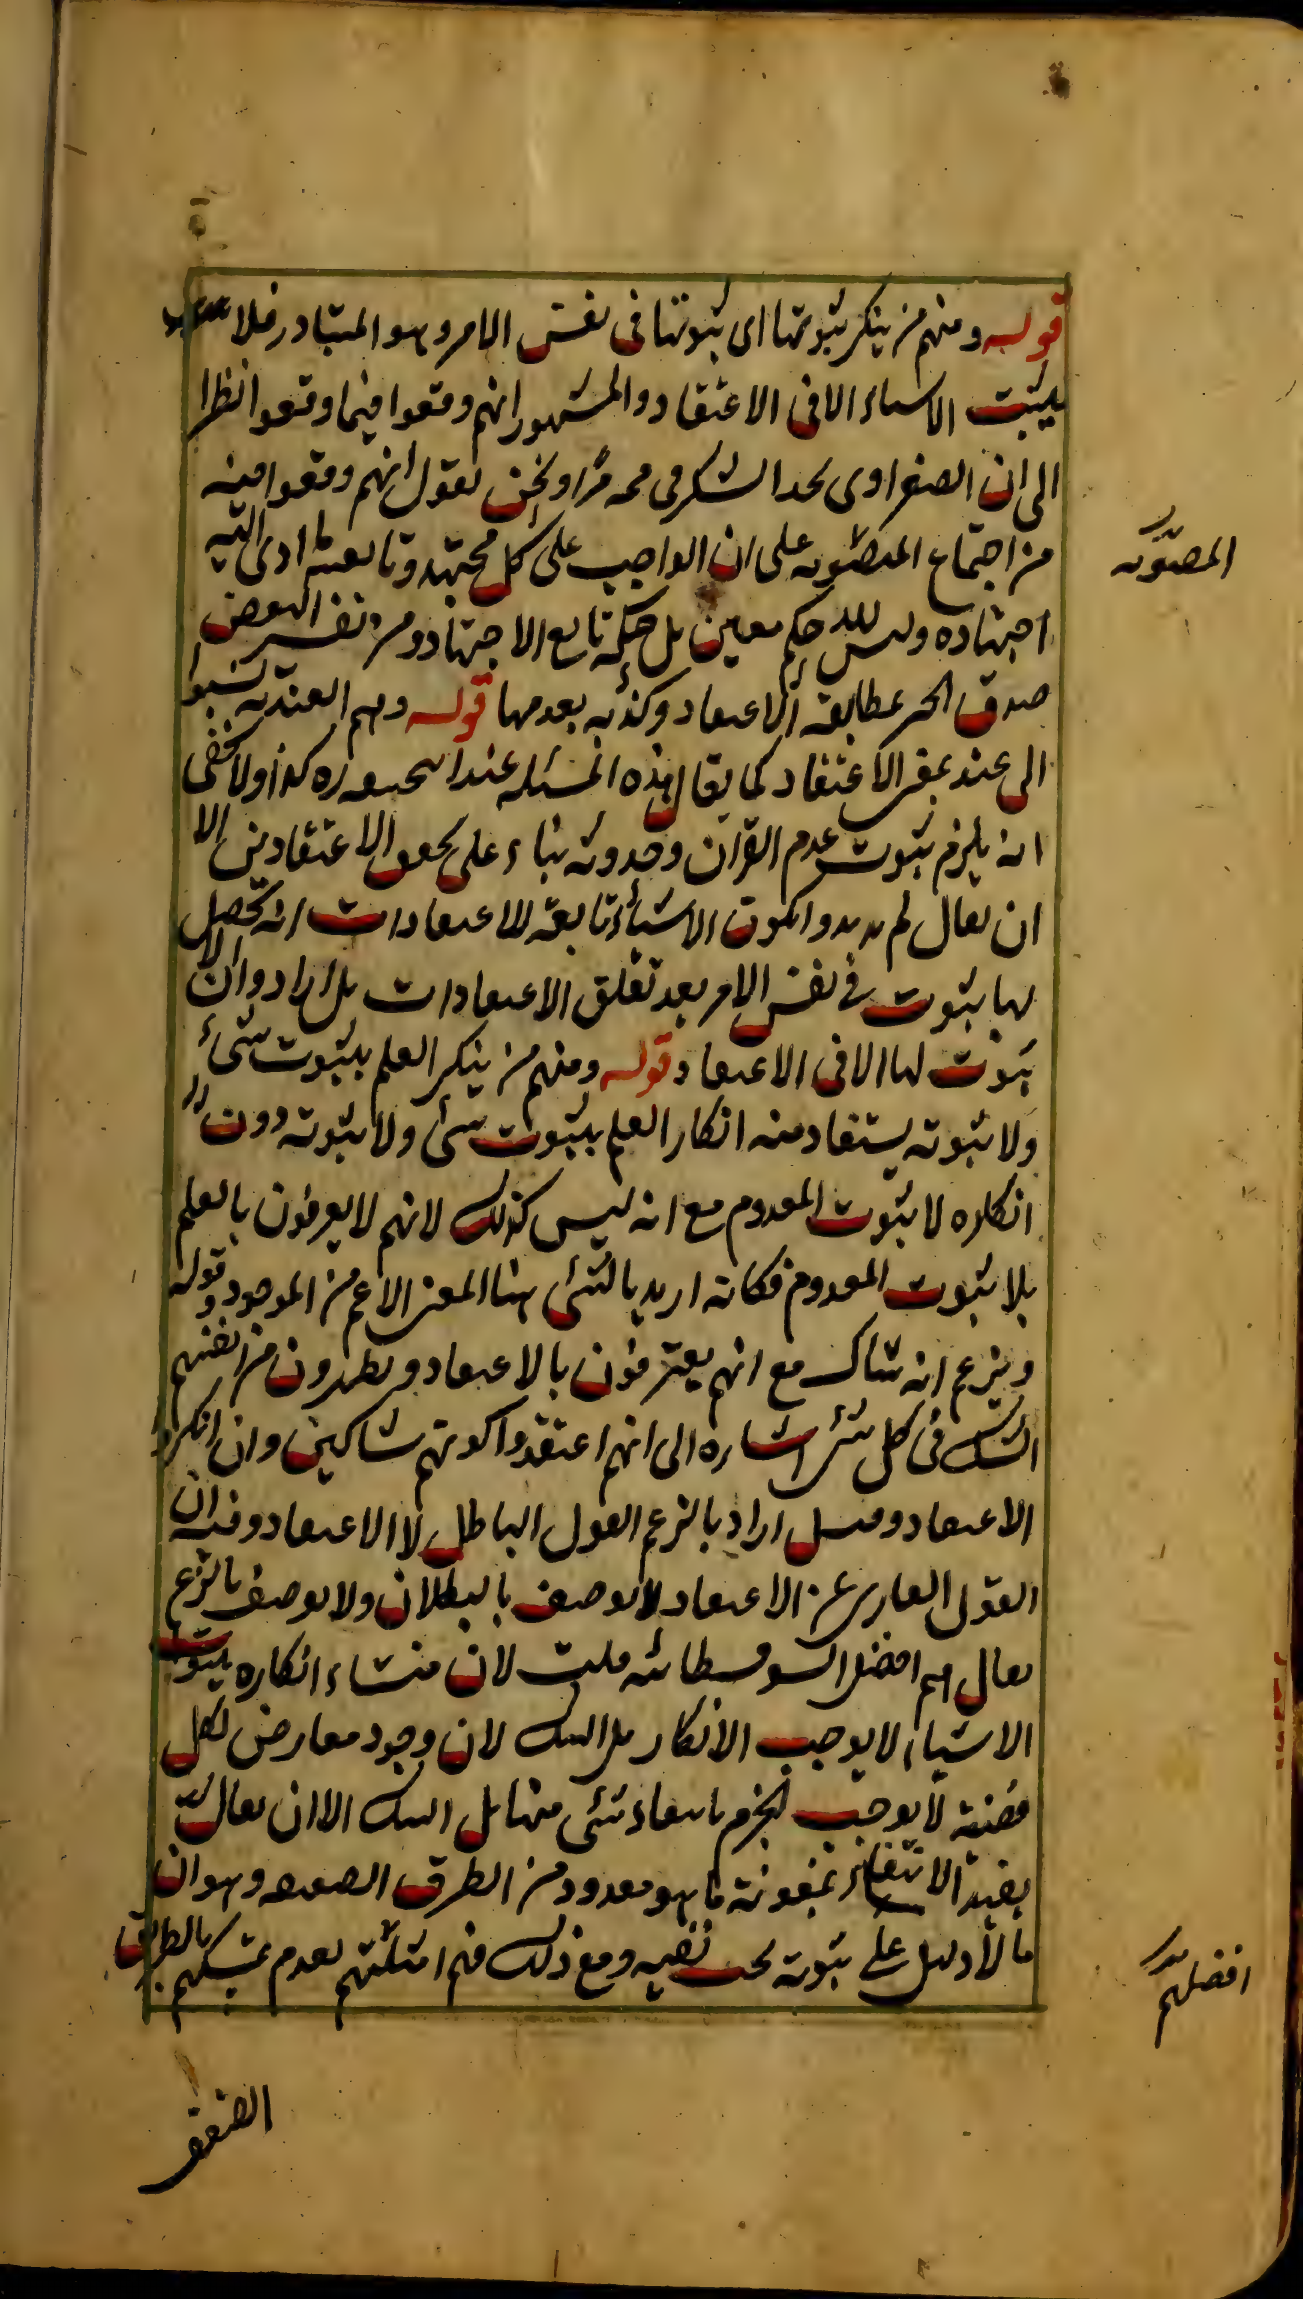 قوله ومنهم من ينكر ثبوتها اى ثبوتها فى نفس الامر وهو المتبادر فلا
يثبت الاشياء الا فى الاعتقاد والمشهور انهم وقعوا فيما وقعوا نظرا
الى ان الصفراوى يجد السكر فى فمه مرا ونحن نقول انهم وقعوا فيه
من اجتماع المصوبه على ان الواجب على كل مجتهد وتابعيه ما ادى اليه
اجتهاده وليس لله حكم معين بل حكمه تابع الاجتهاد ومن تفسير البعض
صدق الخبر بمطابقة الاعتقاد وكذبه بعدمها قوله وهم العندية نسبوا
الى عند بمعنى الاعتقاد كما يقال هذه المسئله عند ابى حنيفه ره كذا ولا يخفى
انه يلزم ثبوت عدم القرآن وحدوثه بناء على تحقق الاعتقادين الا
ان يقال لم يريدوا بكون الاشياء تابعة للاعتقادات انه تحصل
لها ثبوت فى نفس الامر بعد تعلق الاعتقادات بل ارادوا ان لا
ثبوت لها الا فى الاعتقاد قوله ومنهم من ينكر العلم بثبوت شئ
ولا ثبوته يستفاد منه انكار العلم بثبوت شئ ولا ثبوته دون
انكاره لا ثبوت المعدوم مع انه ليس كذلك لانهم لا يعرفون بالعلم
بلا ثبوت المعدوم فكانه اريد بالشئ هنا المعنى الاعم من الموجود وقوله
ويزعم انه شاك مع انهم يعترفون بالاعتقاد ويظهرون من انفسهم
الشك فى كل شئ اشارة الى انهم اعتقدوا كونهم شاكين وان انكروا
الاعتقاد وقيل اراد بالزعم القول الباطل لا الاعتقاد وفيه ان
القول العارى عن الاعتقاد لا يوصف بالبطلان ولا يوصف بالزعم
يقال هم افضل السوفسطائيه قلت لان منشاء انكاره بثبوت
الاشياء لا يوجب الانكار بل الشك لان وجود معارض لكل
قضية لا يوجب الجزم بانتفاء شئ منها بل الشك الا ان يقال
يفيد الانتفاء بمعونة ما هو معدود من الطرق الضعيفه وهو ان
ما لا دليل على ثبوته يجب نفيه ومع ذلك فهم امثلتهم لعدم تمسكهم بالطريق
المصوبه
افضلهم
الضعيف